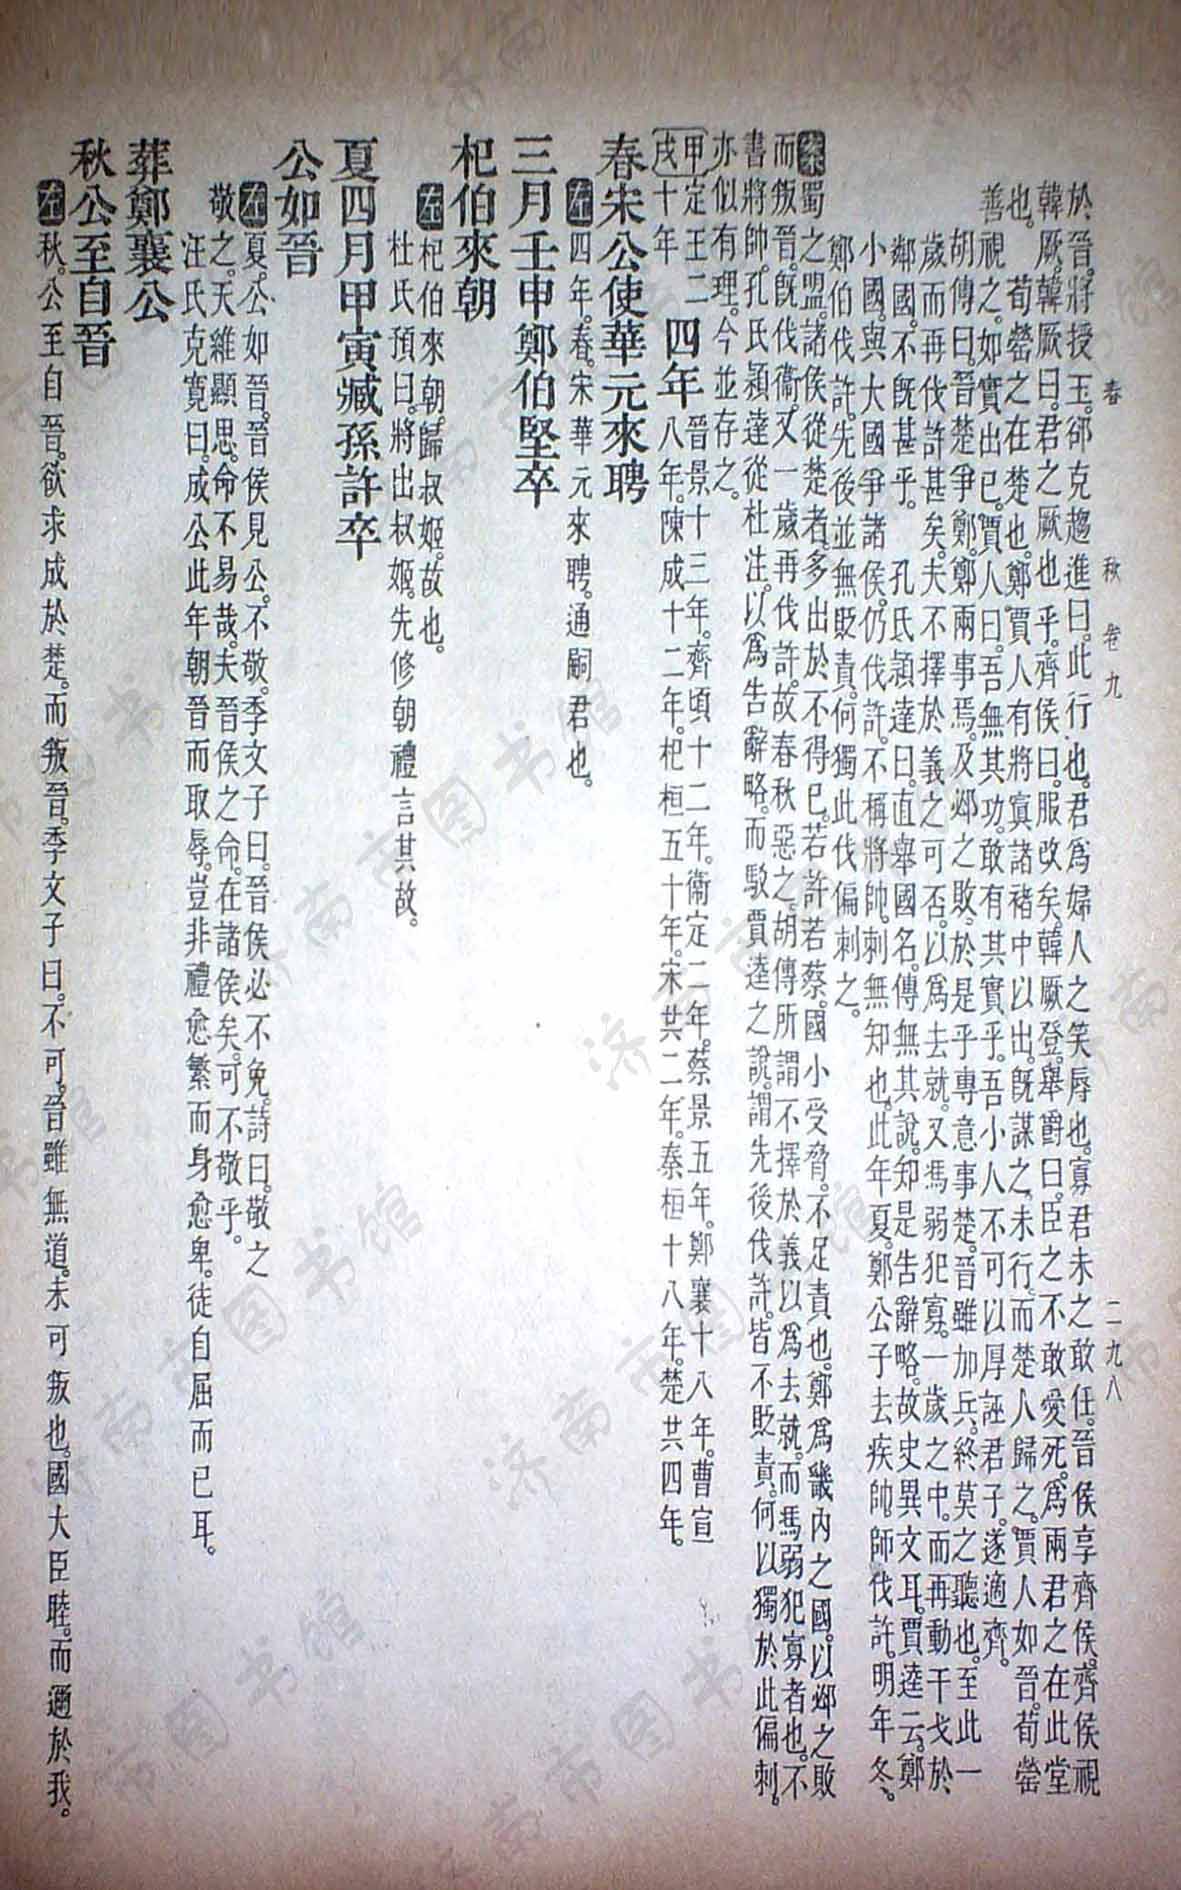 春秋 卷九 二九八
於晉將授玉郤克趨進曰此行也君爲婦人之笑辱也寡君未之敢任晉侯享齊侯齊侯視
韓厥韓厥曰君之厥也乎齊侯曰服改矣韓厥登舉爵曰臣之不敢愛死爲兩君之在此堂
也。荀罃之在楚也鄭賈人有將寘諸褚中以出既謀之未行而楚人歸之賈人如晉荀罃
善視之如實出已賈人曰吾無其功敢有其實乎吾小人不可以厚誣君子遂適齊。
胡傳曰晉楚爭鄭鄭兩事焉及邲之敗於是乎專意事楚晉雖加兵終莫之聽也至此一
歲而再伐許甚矣夫不擇於義之可否以爲去就又馮弱犯寡一歲之中而再動干戈於
鄰國不既甚乎。孔氏穎達曰直舉國名傳無其說知是告辭略故史異文耳賈逵云鄭
小國與大國爭諸侯仍伐許不稱將帥刺無知也此年夏鄭公子去疾帥師伐許明年冬、
鄭伯伐許先後並無貶責何獨此伐偏刺之。
案蜀之盟諸侯從楚者多出於不得已若許若蔡國小受脅不足責也鄭爲畿內之國以邲之敗
而叛晉既伐衞又一歲再伐許故春秋惡之胡傳所謂不擇於義以爲去就而馮弱犯寡者也不
書將帥孔氏穎達從杜注以爲告辭略而駁賈逵之說謂先後伐許皆不貶責何以獨於此偏刺。
亦似有理今並存之。
甲戌 定王二十年 四年 晉景十三年齊頃十二年衞定二年蔡景五年鄭襄十八年曹宣八年陳成十二年杞桓五十年宋共二年秦桓十八年楚共四年。
春宋公使華元來聘
左四年春宋華元來聘通嗣君也。
三月壬申鄭伯堅卒
杞伯來朝
左杞伯來朝歸叔姬故也。
杜氏預曰將出叔姬先修朝禮言其故。
夏四月甲寅臧孫許卒
公如晉
左夏公如晉晉侯見公不敬季文子曰晉侯必不免詩曰敬之
敬之天維顯思命不易哉夫晉侯之命在諸侯矣可不敬乎。
汪氏克寬曰成公此年朝晉而取辱豈非禮愈繁而身愈卑徒自屈而已耳。
葬鄭襄公
秋公至自晉
左秋公至自晉欲求成於楚而叛晉季文子曰不可晉雖無道未可叛也國大臣睦而邇於我。